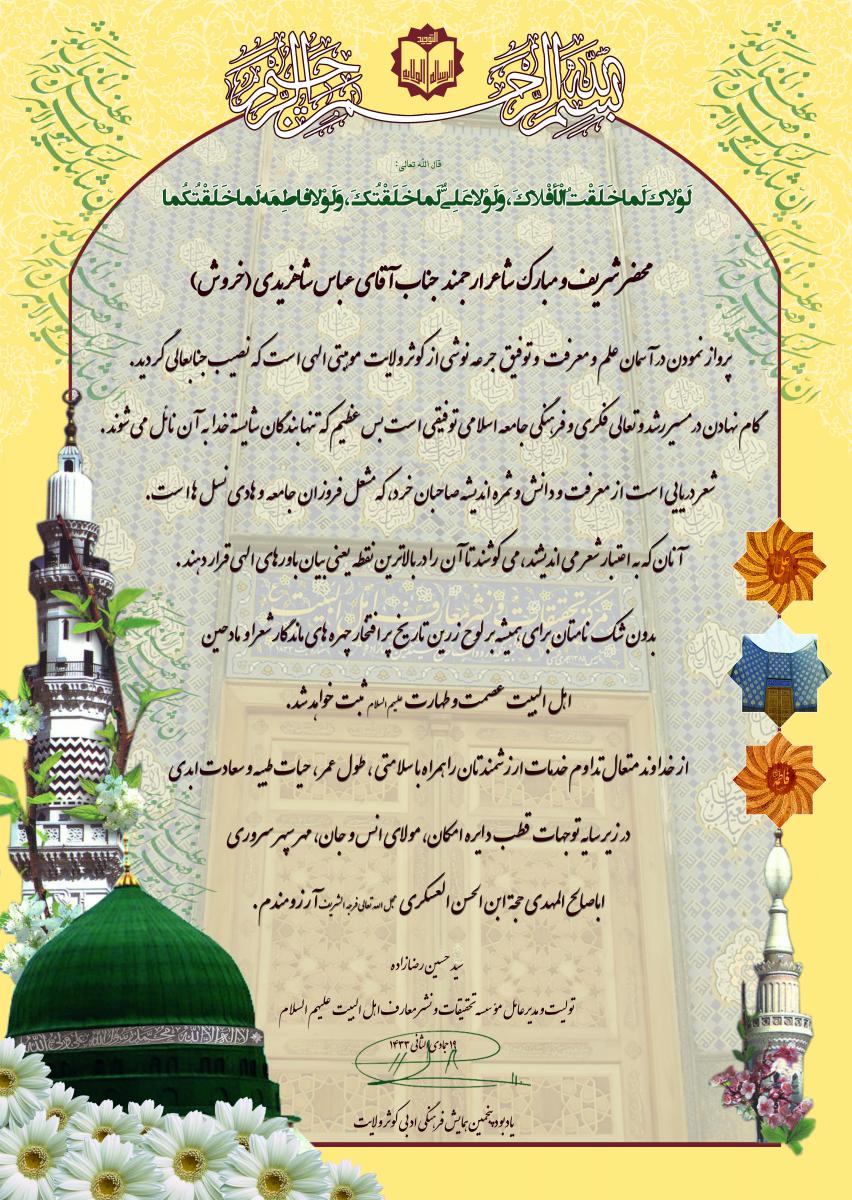 بسم الله الرحمن الرحیم
التوحید
الرسالة الولایة
قال الله تعالی:
لَوْلاكَ لَما خَلَقْتُ الْأَفْلاكَ، وَلَوْلا عَلِیٌّ لَما خَلَقْتُكَ، وَلَوْلا فاطِمَه لَما خَلَقْتُكُما
محضر شریف و مبارک شاعر ارجمند جناب آقای عباس شاهزیدی (خروش)
پرواز نمودن در آسمان علم و معرفت و توفیق جرعه نوشی از کوثر ولایت موهبتی الهی است که نصیب جنابعالی گردید.
گام نهادن در مسیر رشد و تعالی فکری و فرهنگی جامعه اسلامی توفیقی است بس عظیم که تنها بندگان شایسته خدا به آن نائل می شوند.
شعر دریایی است از معرفت و دانش و ثمره اندیشه صاحبان خرد، که مشعل فروزان جامعه و هادی نسل ها است.
آنان که به اعتبار شعر می اندیشند، می کوشند تا آن را در بالاترین نقطه یعنی بیان باورهای الهی قرار دهند.
بدون شک نامتان برای همیشه بر لوح زرین تاریخ پر افتخار چهره های ماندگار شعرا و مادحین
اهل البیت عصمت و طهارت علیهم السلام ثبت خواهد شد.
از خداوند متعال تداوم خدمات ارزشمندتان را همراه با سلامتی، طول عمر، حیات طیبه و سعادت ابدی
در زیر سایه توجهات قطب دایره امکان، مولای انس و جان، مهر سپهر سروری
اباصالح المهدی حجة ابن الحسن العسکری عجل الله تعالی فرجه الشریف آرزومندم.
سید حسین رضازاده
تولیت و مدیر عامل مؤسسه تحقیقات و نشر معارف اهل البیت علیهم السلام
۱۹ جمادی الثانی ۱۴۳۳
یادبود پنجمین همایش فرهنگی ادبی کوثر ولایت
علی
فاطمة